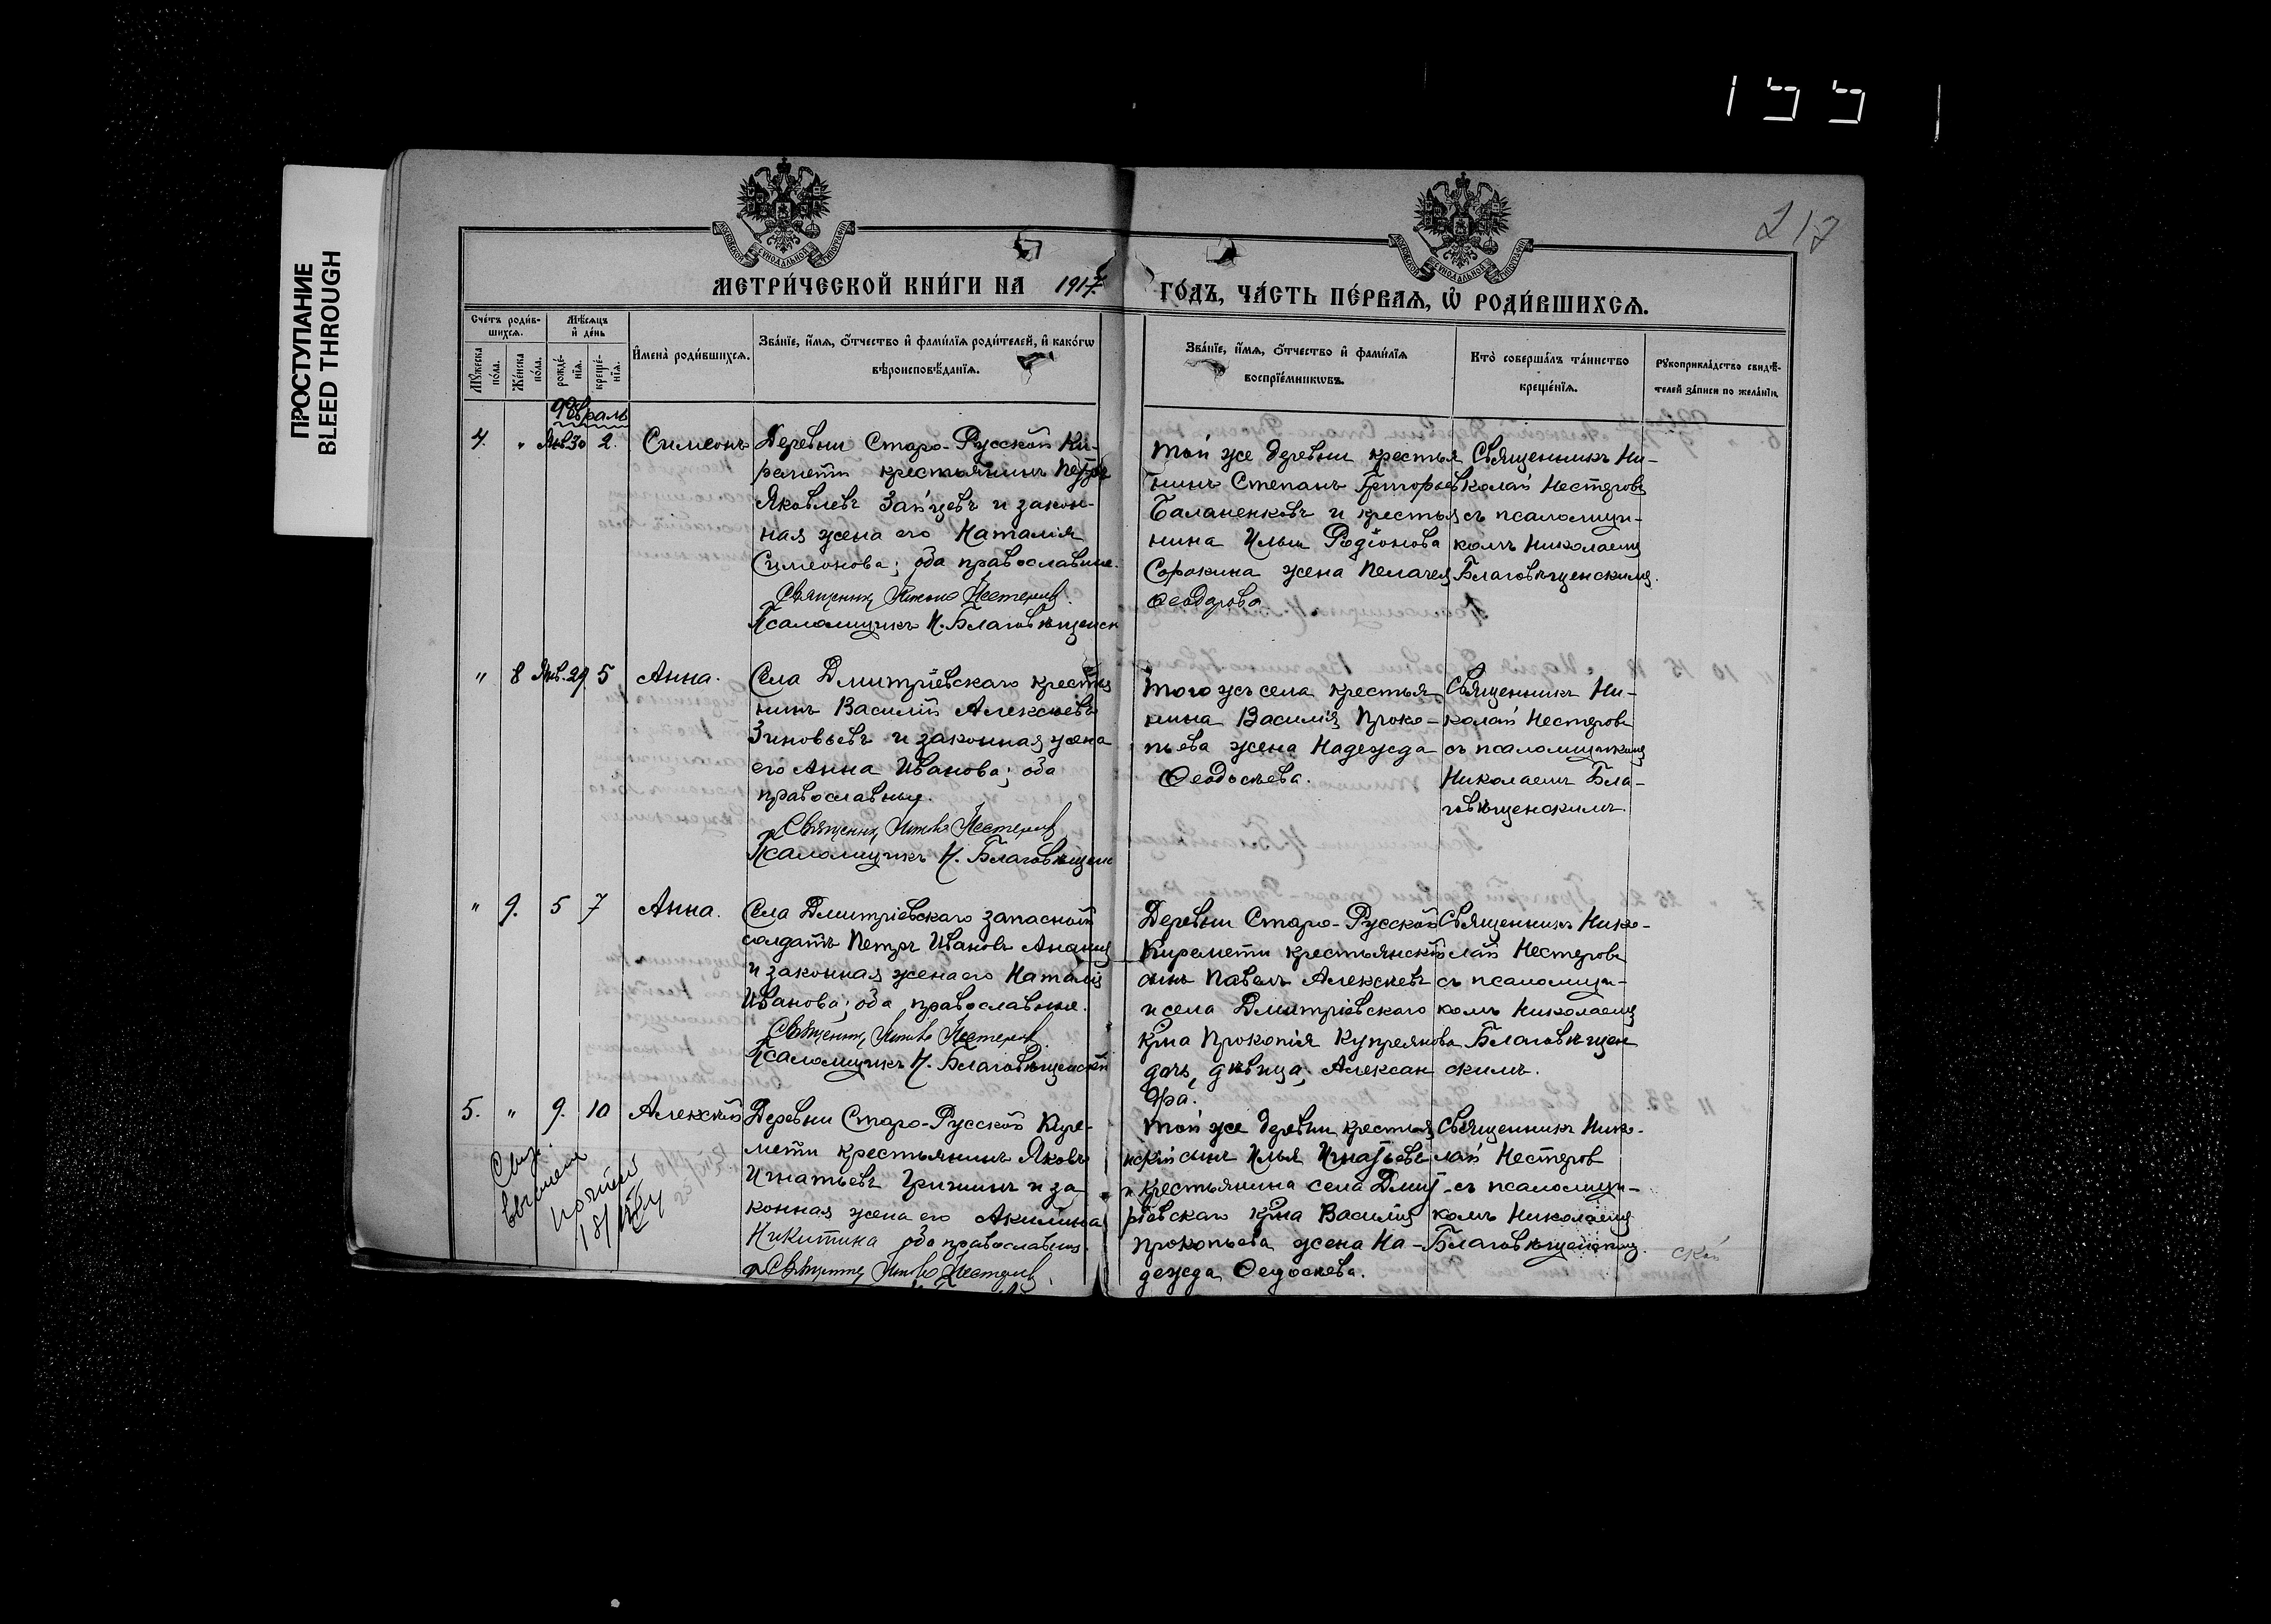 ПРОСТУПАНИЕ
BLEED THROUGH
217
МОСКОВСКОЙ СѴНОДАЛЬНОЙ ТИПОГРАФІИ
МОСКОВСКОЙ СѴНОДАЛЬНОЙ ТИПОГРАФІИ
МЕТРИ́ЧЕСКОЙ КНИ́ГИ НА 1917
ГО́ДЪ, ЧА́СТЬ ПЕ́РВАѦ, Ѡ҆ РОДИ́ВШИХСѦ.
Сче́тъ роди́в-
шихсѧ.
Мѣ́сѧцъ
и҆ де́нь
Мꙋ́жеска
по́ла.
Же́нска
по́ла.
рожде́-
нїѧ.
креще́-
нїѧ.
И҆мена̀ роди́вшихсѧ.
Зва́нїе, и҆́мѧ, ѻ҆́тчество и҆ фами́лїѧ роди́телей, и҆ како́гѡ
вѣроисповѣ́данїѧ.
Зва́нїе, и҆́мѧ, ѻ҆́тчество и҆ фами́лїѧ
воспрїе́мникѡвъ.
Кто̀ соверша́лъ та́инство
креще́нїѧ.
Рꙋкоприкла́дство свидѣ́-
телей за́писи по жела́нїю.
Февраль
4. " Янв.30 2. Симеонъ
Деревни Старо-Русской Ки-
ремети крестьянинъ Петръ
Яковлевъ Зайцевъ и закон-
ная жена его Наталія
Симеонова; оба православные.
Священникъ Николай Нестеровъ.
Псаломщикъ Н. Благовѣщенск
Той же деревни крестья
нинъ Степанъ Григорьев
Баланенковъ и крестья
нина Ильи Родіонова
Сорокина жена Пелагея
Ѳеодорова.
Священникъ Ни-
колай Нестеровъ
съ псаломщи-
комъ Николаемъ
Благовѣщенскимъ.
" 8 Янв.29 5 Анна.
Села Дмитріевскаго крестья
нинъ Василій Алексѣевъ
Зиновьевъ и законная жена
его Анна Иванова; оба
православные.
Священникъ Николай Нестеровъ
Псаломщикъ Н. Благовѣщенс
Того жъ села крестья
нина Василія Проко-
пьева жена Надежда
Ѳеодосѣева.
Священникъ Ни-
колай Нестеровъ
съ псаломщикомъ
Николаемъ Бла-
говѣщенскимъ.
" 9. 5 7 Анна.
Села Дмитріевскаго запасной
солдатъ Петръ Ивановъ
и законная жена его Наталія
Иванова; оба православные.
Священникъ Николай Нестеровъ.
Псаломщикъ Н. Благовѣщенскій
Деревни Старо-Русской
Киремети крестьянскій
сынъ Павелъ Алексѣевъ
и села Дмитріевскаго
кр-на Прокопія Купреянова
дочь, дѣвица Алексан
дра.
Священникъ Нико-
лай Нестеровъ
съ псаломщи-
комъ Николаемъ
Благовѣщен
скимъ.
5. " 9. 10 Алексѣй
Деревни Старо-Русской Кире-
мети крестьянинъ Яковъ
Игнатьевъ Гришинъ и за
конная жена его Акилина
Никитина оба православные.
Священникъ Николай Нестеровъ.
Той же деревни крестья
нскій сынъ Илья Игнатьевъ
и крестьянина села Дмит-
ріевскаго кр-на Василія
Прокопьева жена На-
дежда Ѳедосѣева.
Священникъ Нико-
лай Нестеров
съ псаломщи-
комъ Николаемъ
Благовѣщенскимъ.
ской